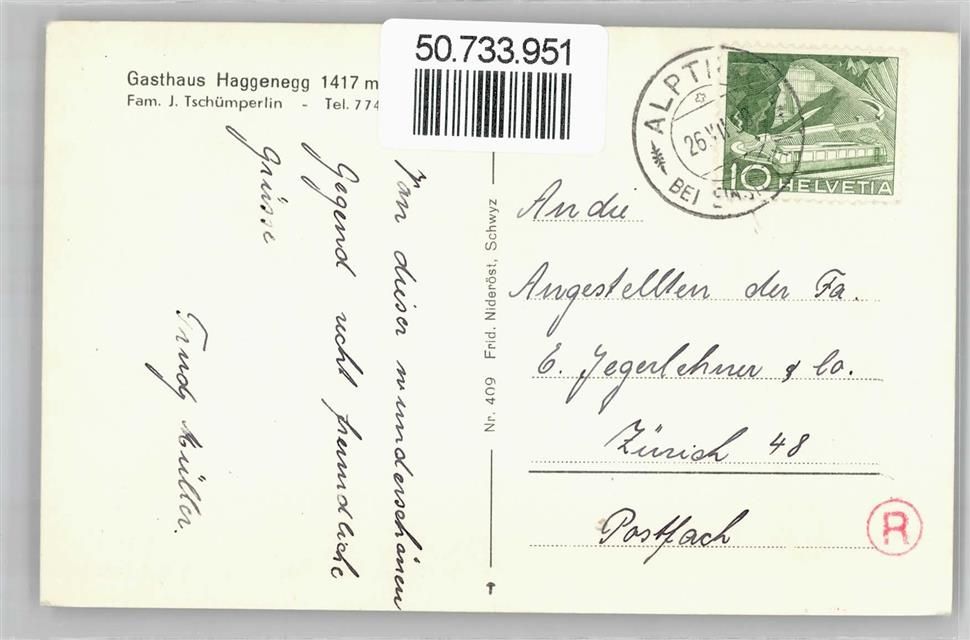 50.733.951
Gasthaus Haggenegg 1417 m
Fam. J. Tschümperlin - Tel. 774
Von dieser wunderschönen
Gegend recht freundliche
Grüsse
Trudy Müller.
Nr. 409 Frid. Nideröst, Schwyz
ALPT
26
BEI
10 HELVETIA
An die
Angestellten der Fa.
E. Jegerlehner & Co.
Zürich 48
Postfach
R